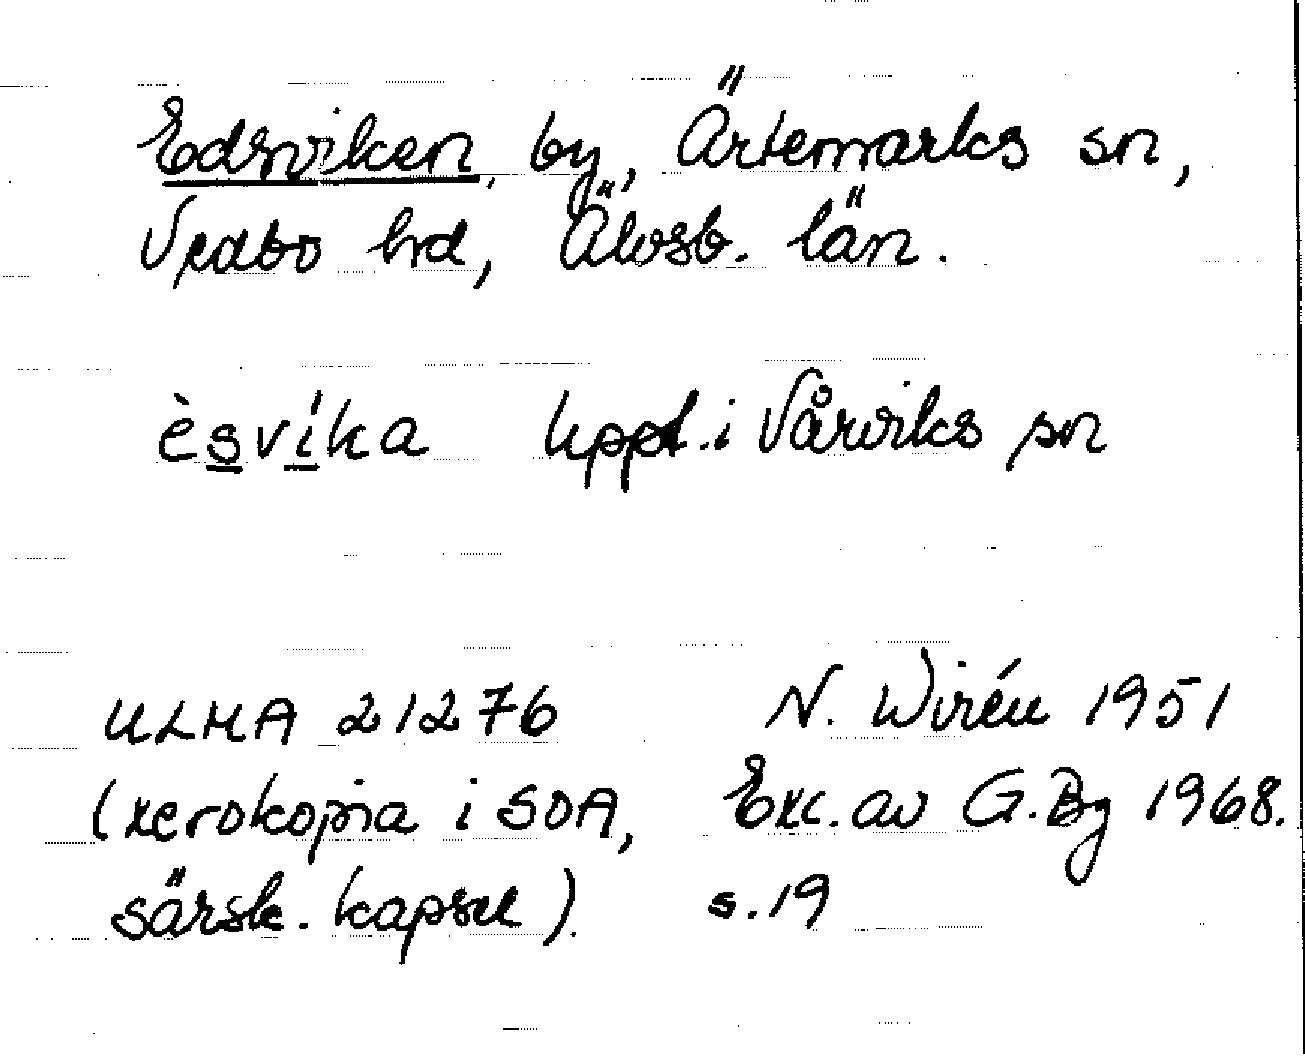 Edsviken, by, Ärtemarks sn,
Vedbo hd, Älvsb. län.
èsvíka uppt. i Vårviks sn
ULMA 21276 N. Wirén 1951
(xerokopia i SOA, Exc. av G. Bg 1968.
särsk. kapsel). s. 19